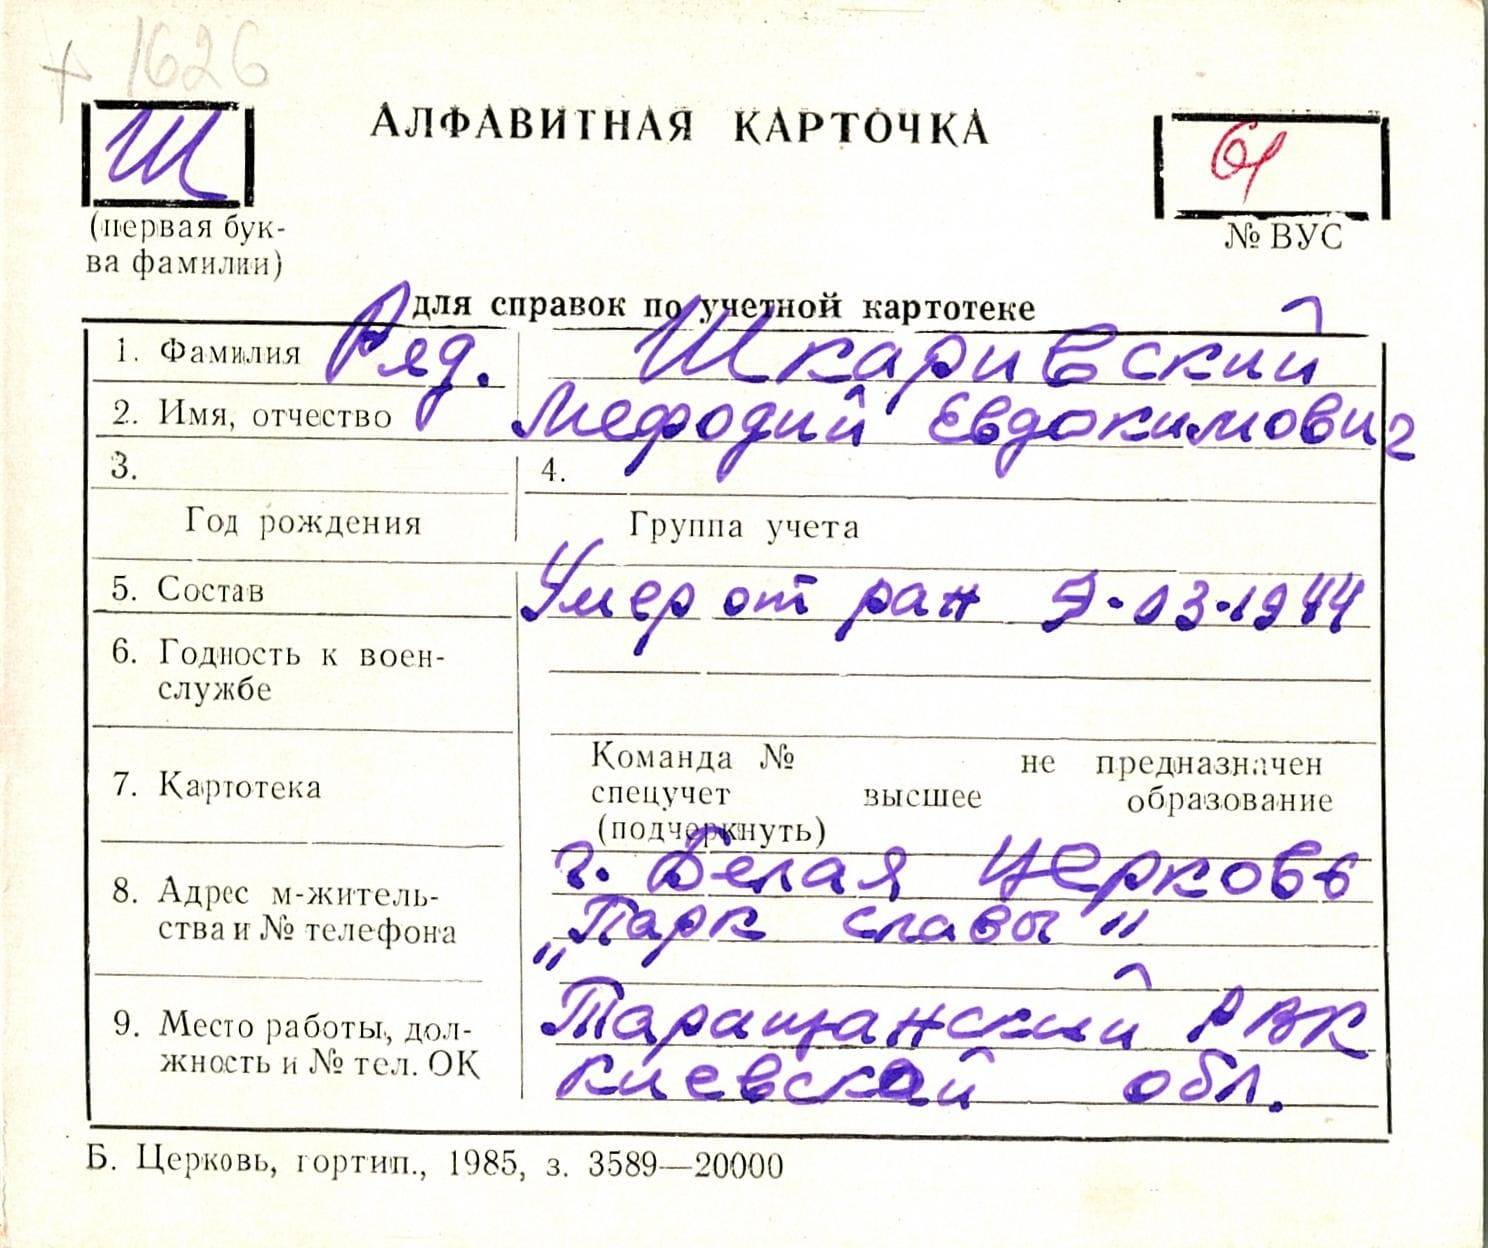 + 1626
Ш
АЛФАВИТНАЯ КАРТОЧКА
(первая бук-
ва фамилии)
№ ВУС
для справок по учетной картотеке
1. Фамилия Ряд. Шкаривский
2. Имя, отчество Мефодий Евдокимович
3.
4.
Год рождения
Группа учета
5. Состав Умер от ран 9.03.1944
6. Годность к воен-
службе
7. Картотека
Команда № не предназначен
спецучет высшее образование
(подчеркнуть)
8. Адрес м-житель-
ства и № телефона
г. Белая Церковь
„Парк славы"
9. Место работы, дол-
жность и № тел. ОК
Таращанский РВК
Киевской обл.
Б. Церковь, гортип., 1985, з. 3589—20000